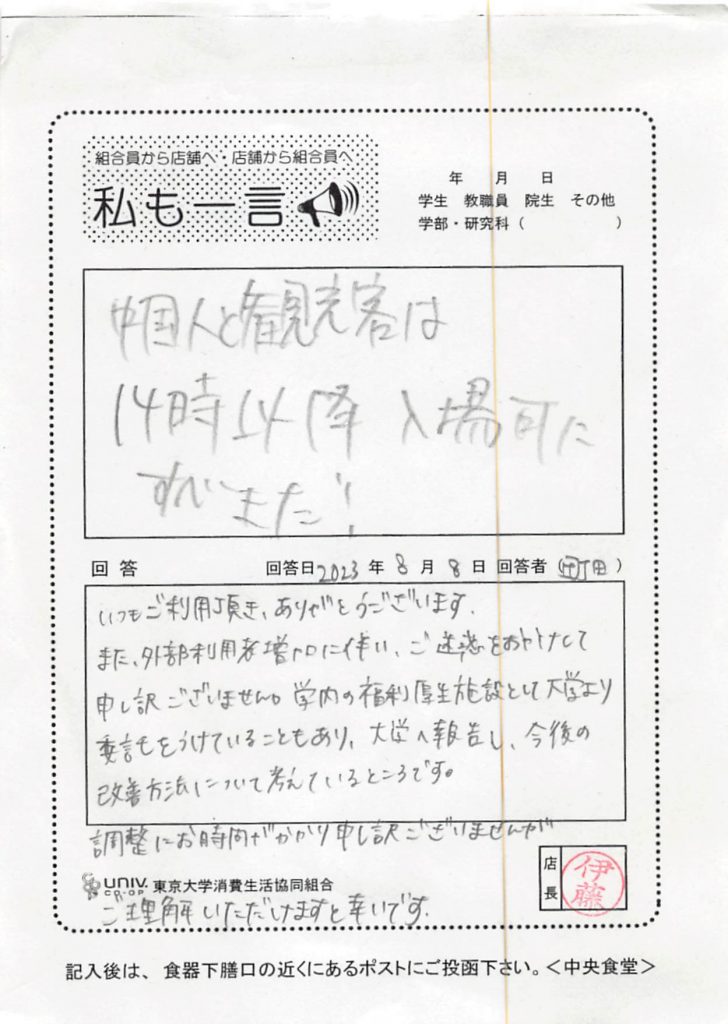 組合員から店舗へ・店舗から組合員へ
私も一言
年 月 日
学生 教職員 院生 その他
学部・研究科 ( )
中国人と観光客は
14時以降 入場可に
すべきだ!
回答 回答日 2023 年 8 月 8 日 回答者 (町田)
いつもご利用頂き、ありがとうございます。
また、外部利用者増加に伴い、ご迷惑をおかけして
申し訳ございません。学内の福利厚生施設として大学より
委託をうけていることもあり、大学へ報告し、今後の
改善方法について考えているところです。
調整にお時間がかかり申し訳ございませんが
UNIV. CO-OP 東京大学消費生活協同組合
ご理解いただけますと幸いです。
店長 伊藤
記入後は、食器下膳口の近くにあるポストにご投函下さい。<中央食堂>